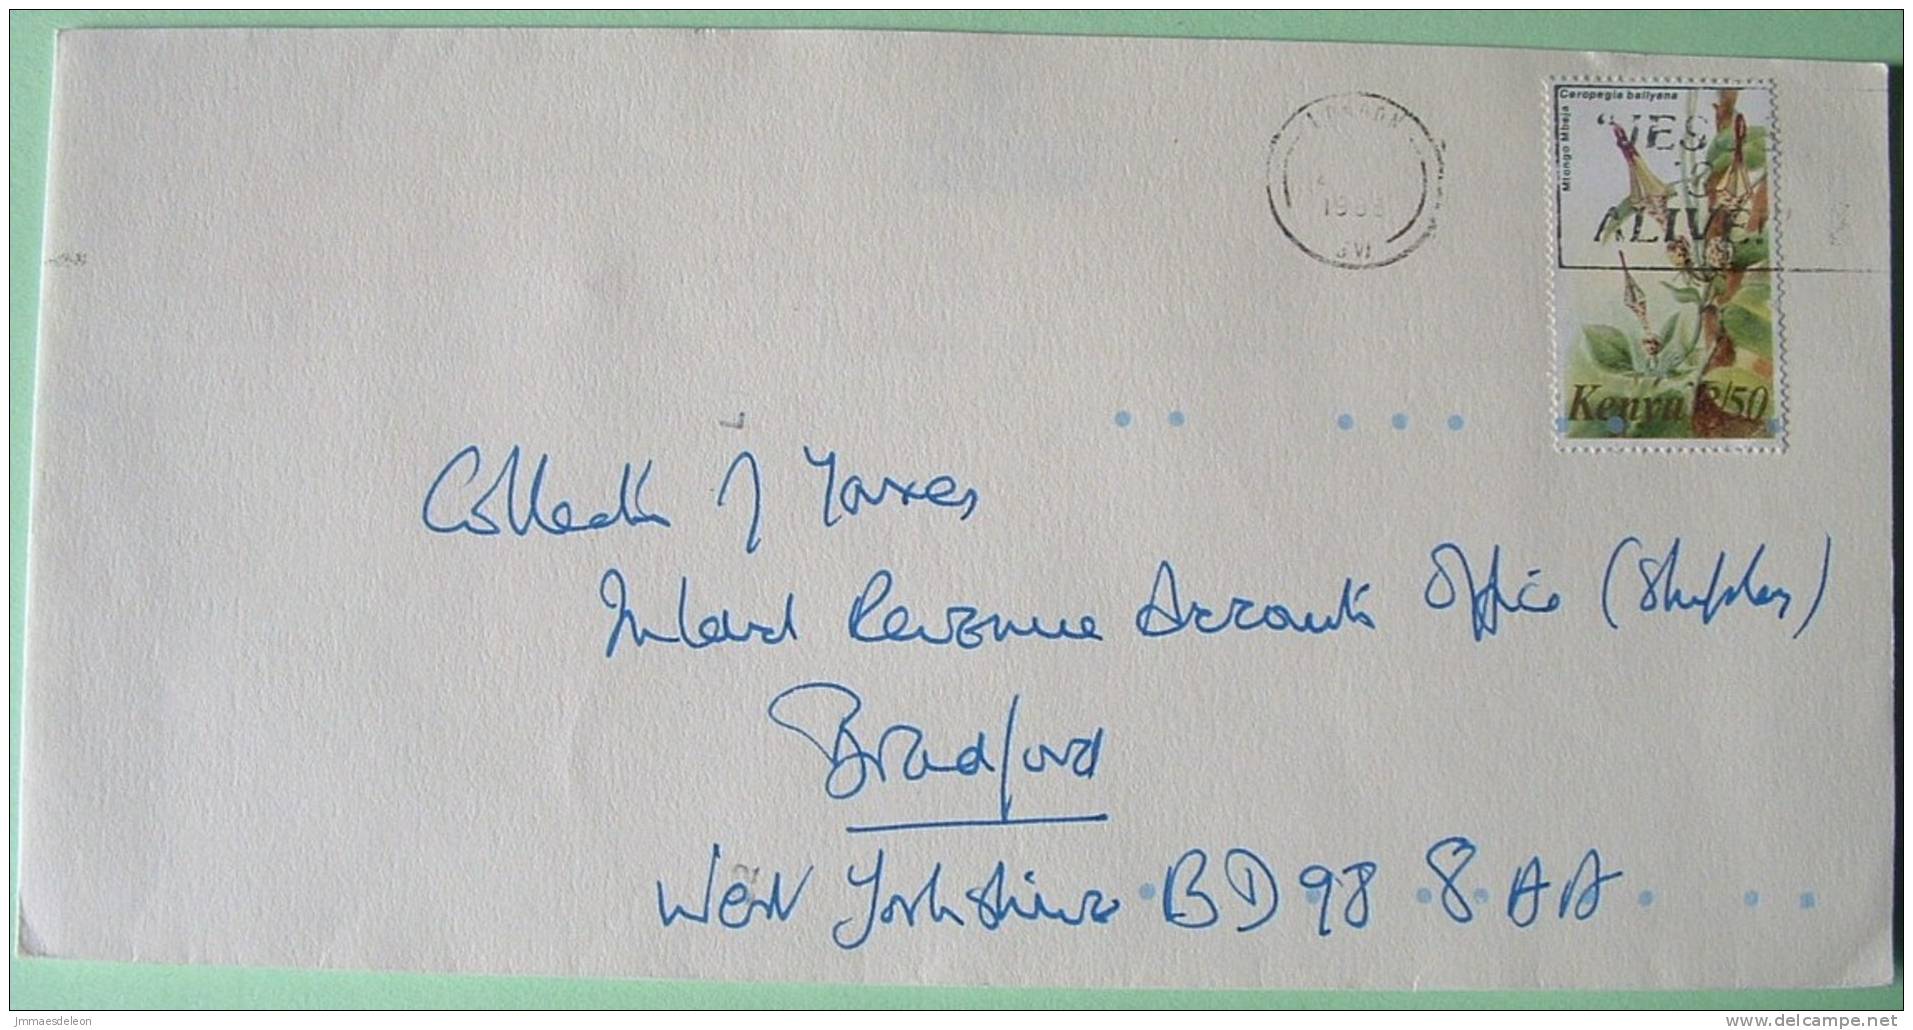 Ceropegia ballyana
Mtongo Mbeja
LONDON
1988
SW1
"JESUS
IS
ALIVE!"
Kenya 2/50
Collector of Taxes
Inland Revenue Accounts Office (Shipley)
Bradford
West Yorkshire BD98 8AA
Jmmaesdeleon
www.delcampe.net